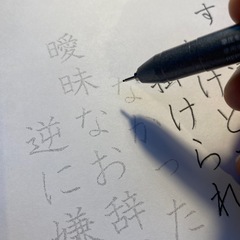 す げと
掛けられ
なかった
曖昧なお辞
逆に嫌